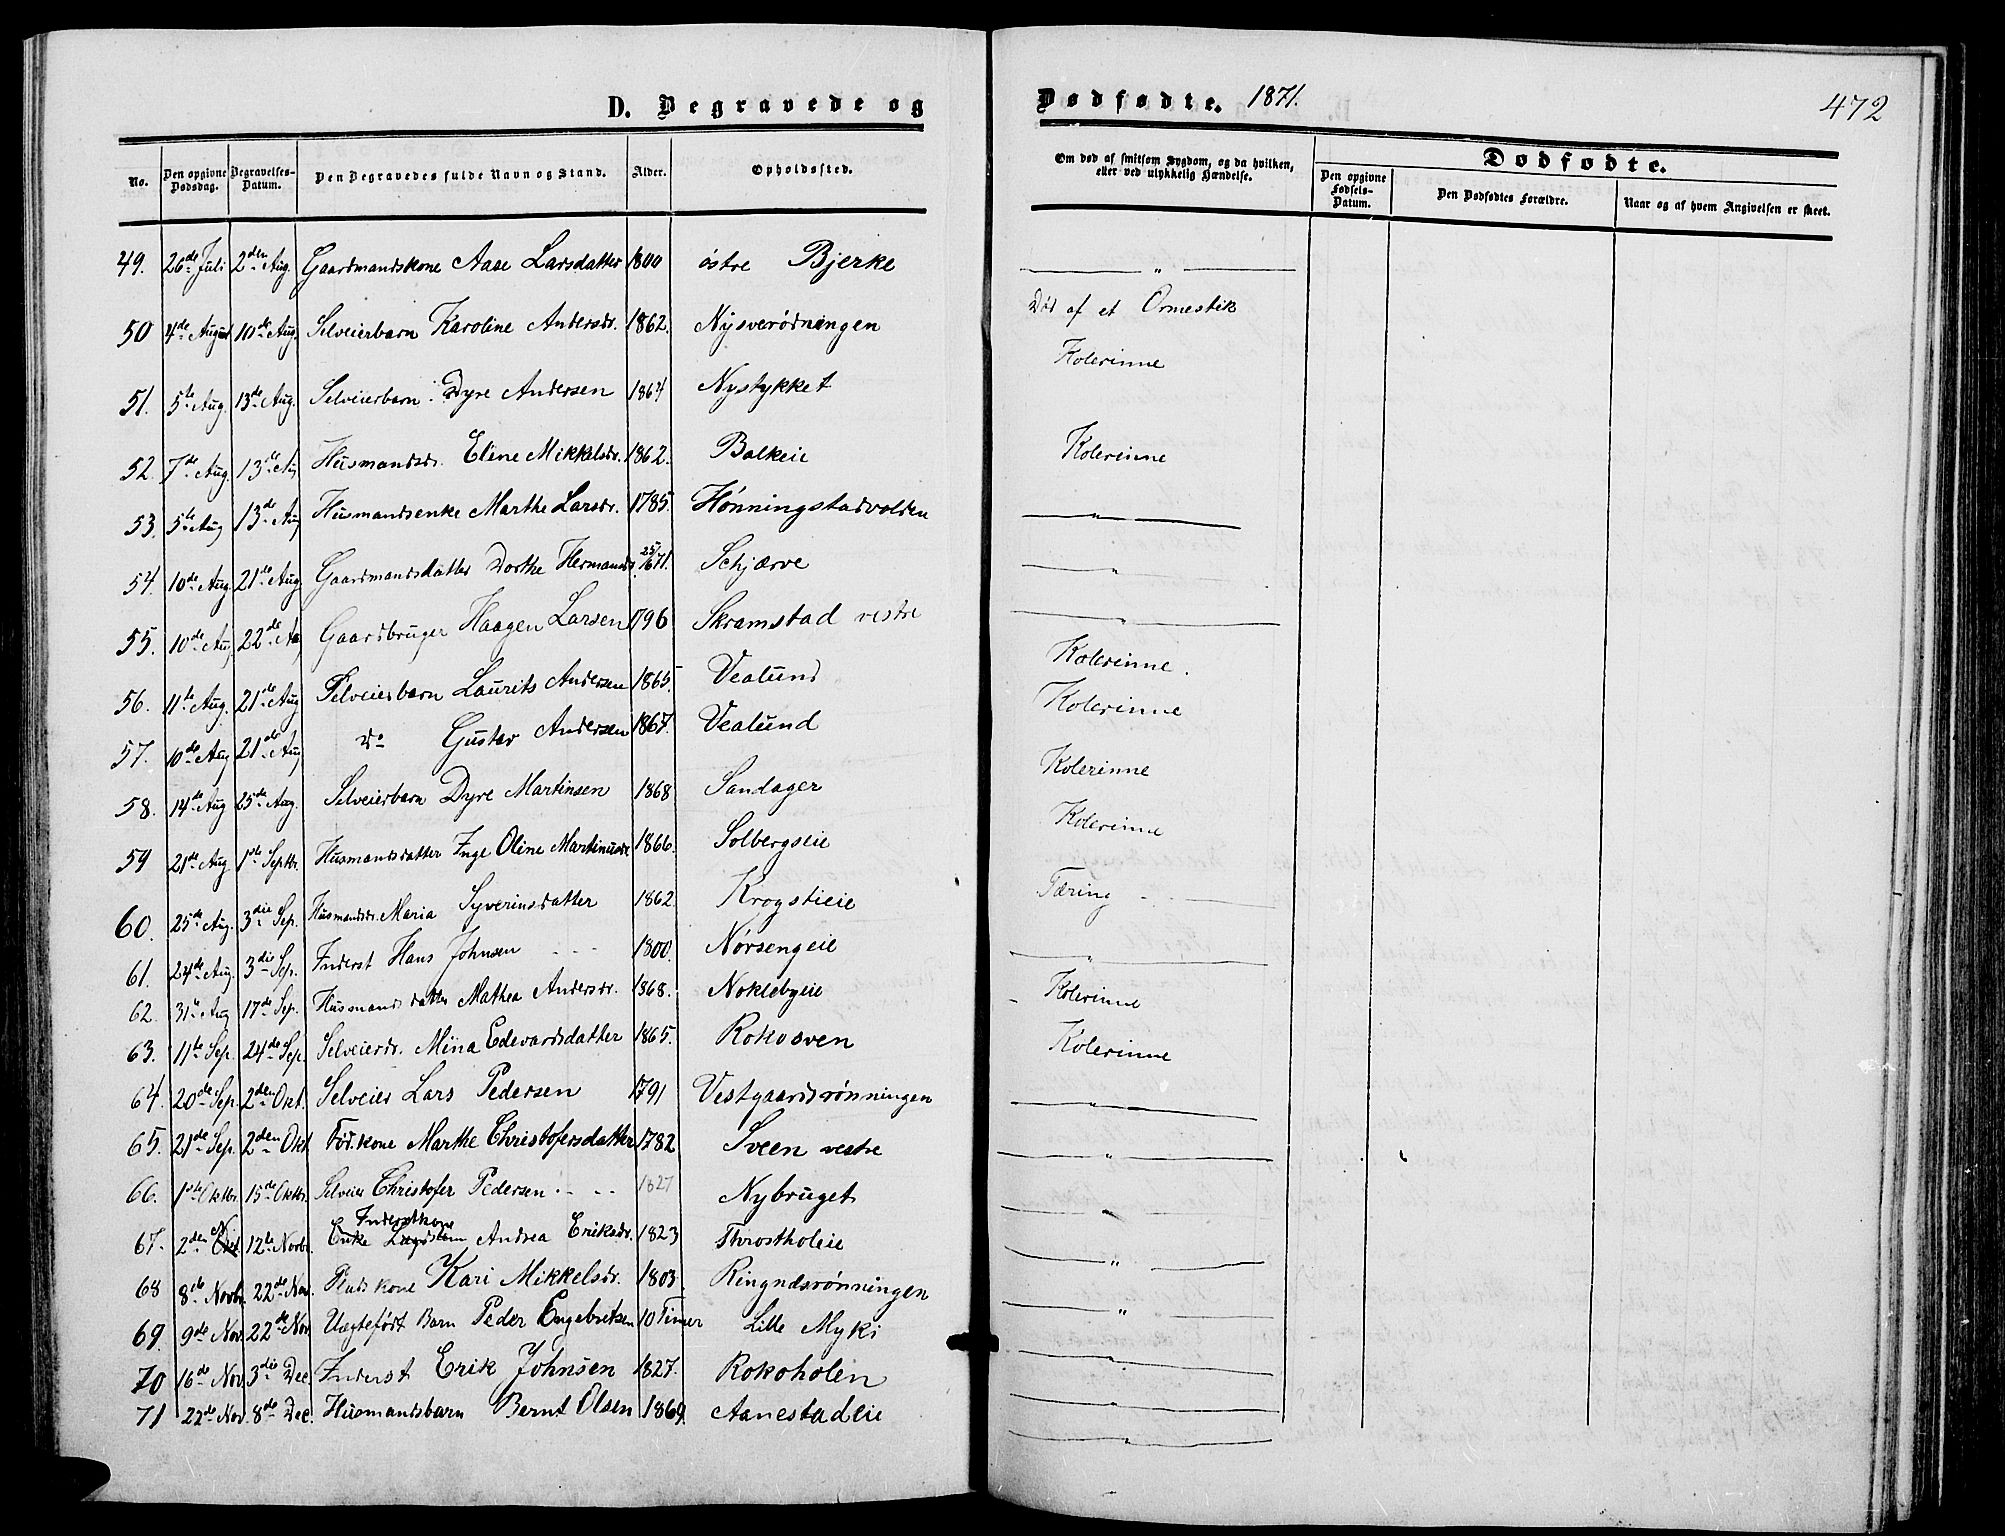 D. Begravede og
Dødfødte. 1871.
472
No.
Den opgivne Dødsdag.
Begravelses-Datum.
Den Begravedes fulde Navn og Stand.
Alder.
Opholdssted.
Om død af smitsom Sygdom, og da hvilken, eller ved ulykkelig Hændelse.
Dødfødte.
Den opgivne Fødsels-Datum.
Den Dødfødtes Forældre.
Naar og af hvem Angivelsen er skeet.
49. 26de Juli 2den Aug. Gaardmandskone Aase Larsdatter 1800 østre Bjerke "
50 4de August 10de Aug. Selveierbarn Karoline Andersdr. 1862. Nysverødningen Død af et Ormestik
51. 5te Aug. 13de Aug. Selveierbarn Dyre Andersen 1864 Nystykket Kolerinne
52. 7de Aug. 13de Aug Husmandsdr. Eline Mikkelsdr. 1862. Balkeie Kolerinne
53. 5te Aug 13de Aug Husmandsenke Marthe Larsdr. 1785 Hønningstadvolden "
54. 10de Aug. 21de Aug Gaardmandsdatter Dorthe Hermandsdr. 1871. Schjærve "
55. 10de Aug 22de Au Gaardbruger Haagen Larsen 1796 Skramstad vestre "
56. 11te Aug. 21de Aug Selveierbarn Laurits Andersen 1865. Vealund Kolerinne.
57. 10de Aug 21de Aug do Gustav Andersen 1867. Vealund Kolerinne
58. 14de Aug 25de Aug. Selveierbarn Dyre Martinsen 1868 Sandager Kolerinne
59 21de Aug 1ste Septbr. Husmandsdatter Inge Oline Martinusdr 1866. Solbergseie Kolerinne
60. 25de Aug. 3die Sep. Husmandsdr. Maria Syverinsdatter 1862 Krogstieie Tæring
61. 24de Aug. 3die Sep. Inderst Hans Johnsen 1800. Nørsengeie "
62. 31te Aug 17de Sep. Husmandsdatter Mathea Andersdr. 1868. Noklebyeie Kolerinne
63. 11te Sep. 24de Sep. Selveierdr. Mina Edevardsdatter 1865. Rokosven Kolerinne
64. 20de Sep. 2den Okt. Selveier Lars Pedersen 1791 Vestgaardsrønningen "
65. 21de Sep. 2den Okt Fød.kone Marthe Christofersdatter 1782 Sveen vestre "
66. 1ste Oktbr. 15de Oktbr. Selveier Christofer Pedersen 1827 Nybruget "
67. 2den Nov 12te Novbr. Inderstkone Andrea Eriksdr. 1823 Throstholeie "
68 8de Novbr. 22de Nov. Pladskone Kari Mikkelsdr. 1803. Ringnæsrønningen "
69. 9de Nov. 22de Nov Uægtefødt Barn Peder Engebretsen 10 Timer Lille Myki "
70 16de Nov. 3die Dec. Inderst Erik Johnsen 1827. Rokoholen "
71 22de Nov. 8de Dec. Husmandsbarn Bernt Olsen 1869. Aanestadeie "